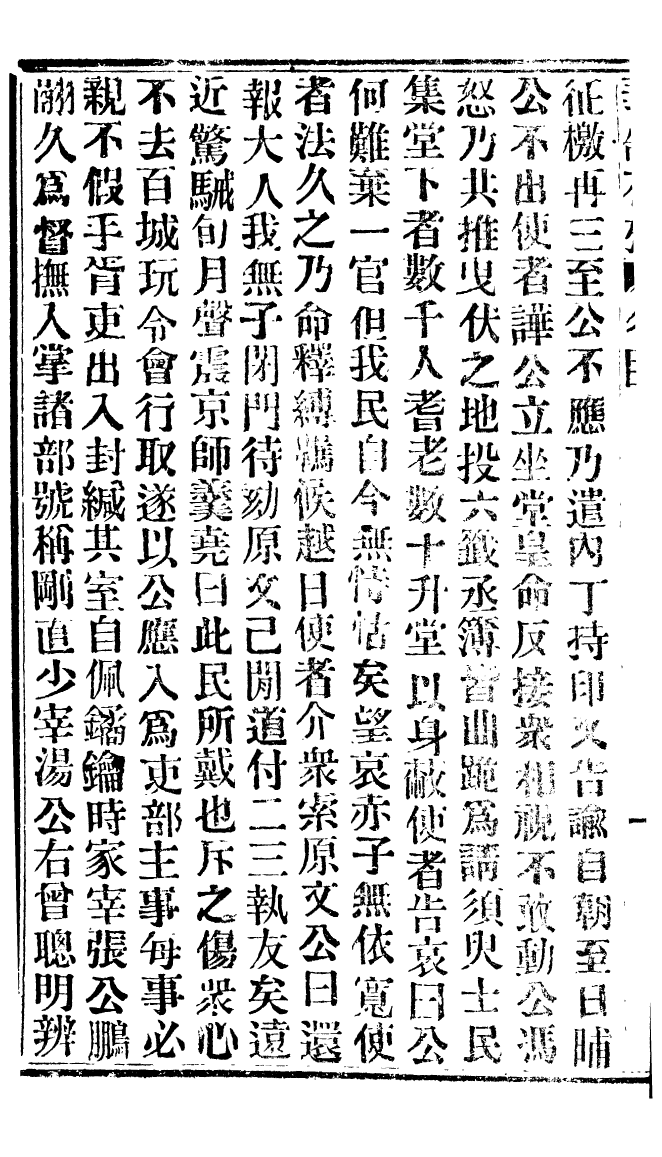 征檄再三至公不應乃遣內丁持印文告諭自朝至日晡
公不出使者譁公立坐堂皇命反接衆相視不敢動公馮
怒乃共推曳伏之地投六籤丞簿皆曲跪爲請須臾士民
集堂下者數千人耆老數十升堂以身蔽使者告哀曰公
何難棄一官但我民自今無恃怙矣望哀赤子無依寬使
者法久之乃命釋縛鵠候越日使者介衆索原文公曰還
報大人我無子閉門待劾原文已閒道付二三執友矣遠
近驚駴旬月聲震京師羹堯曰此民所戴也斥之傷衆心
不去百城玩令會行取遂以公應入爲吏部主事每事必
親不假手胥吏出入封緘其室自佩鐍鑰時家宰張公鵬
翮久爲督撫入掌諸部號稱剛直少宰湯公右曾聰明辨